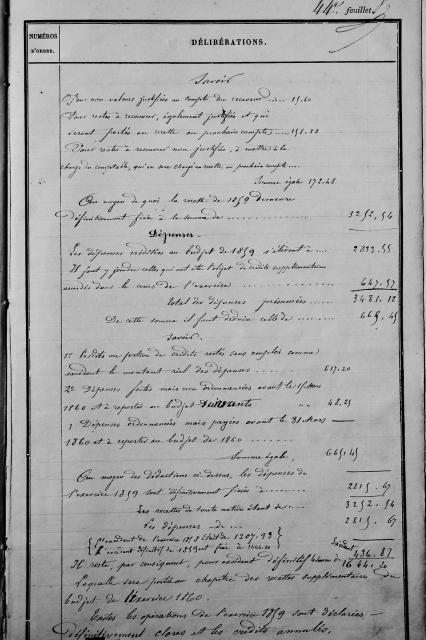 44e feuillet
NUMÉROS
D'ORDRE.
DÉLIBÉRATIONS.
Savoir
Pour non valeurs justifiées au compte du receveur .... 15.60
Pour restes à recouvrer, également justifiés et qui
seront portés en recette au prochain compte ....
Pour restes à recouvrer non justifiés, à mettre à la
charge du comptable, qui en sera chargé en recette, au prochain compte ....
Somme égale 172.48
Au moyen de quoi la recette de 1859 demeure
définitivement fixée à la somme de .... 3252.54
Dépenses.
Les dépenses créditées au budget de 1859 s'élèvent à .... 2833.55
Il faut y joindre celles qui ont été l'objet de crédits supplémentaires
accordés dans le cours de l'exercice .... 647.57
total des dépenses présumées .... 3481.12
De cette somme il faut déduire celle de .... 665.45
Savoir.
1° Crédits ou portion de crédits restés sans emploi comme
excédant le montant réel des dépenses .... 617.20
2° Dépenses faites mais non ordonnancées avant le 15 Mars
1860 et à reporter au budget suivants .. 48.25
3 Dépenses ordonnancées mais payées avant le 31 Mars
1860 et à reporter au budget de 1860 ....
Somme égale 665.45
Au moyen des déductions ci-dessus, les dépenses de
l'exercice 1859 sont définitivement fixées à .... 2815.67
Les recettes de toute nature étant de .... 3252.54
Les dépenses de .... 2815.67
L'excédant de l'exercice 1858 était de 1207.33
L'excédant définitif de 1859 est fixé à 1644.20
436.87
Il reste, par conséquent, pour excédent définitif la somme de 1644.20
Laquelle sera portée au chapitre des recettes supplémentaires du
budget de l'exercice 1860.
Toutes les opérations de l'exercice 1859 sont déclarées
définitivement closes et les crédits annulés.